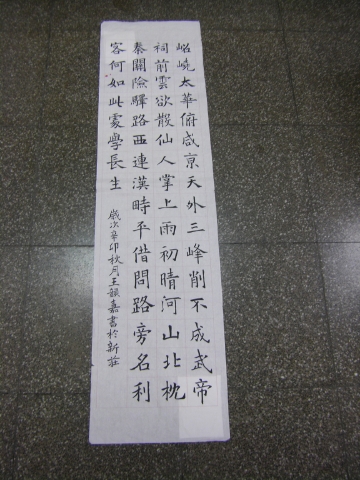 岹嶢太華俯咸京天外三峰削不成武帝
祠前雲欲散仙人掌上雨初晴河山北枕
秦關險驛路西連漢時平借問路旁名利
容何如此處學長生
歲次辛卯秋月王韻嘉書於新莊